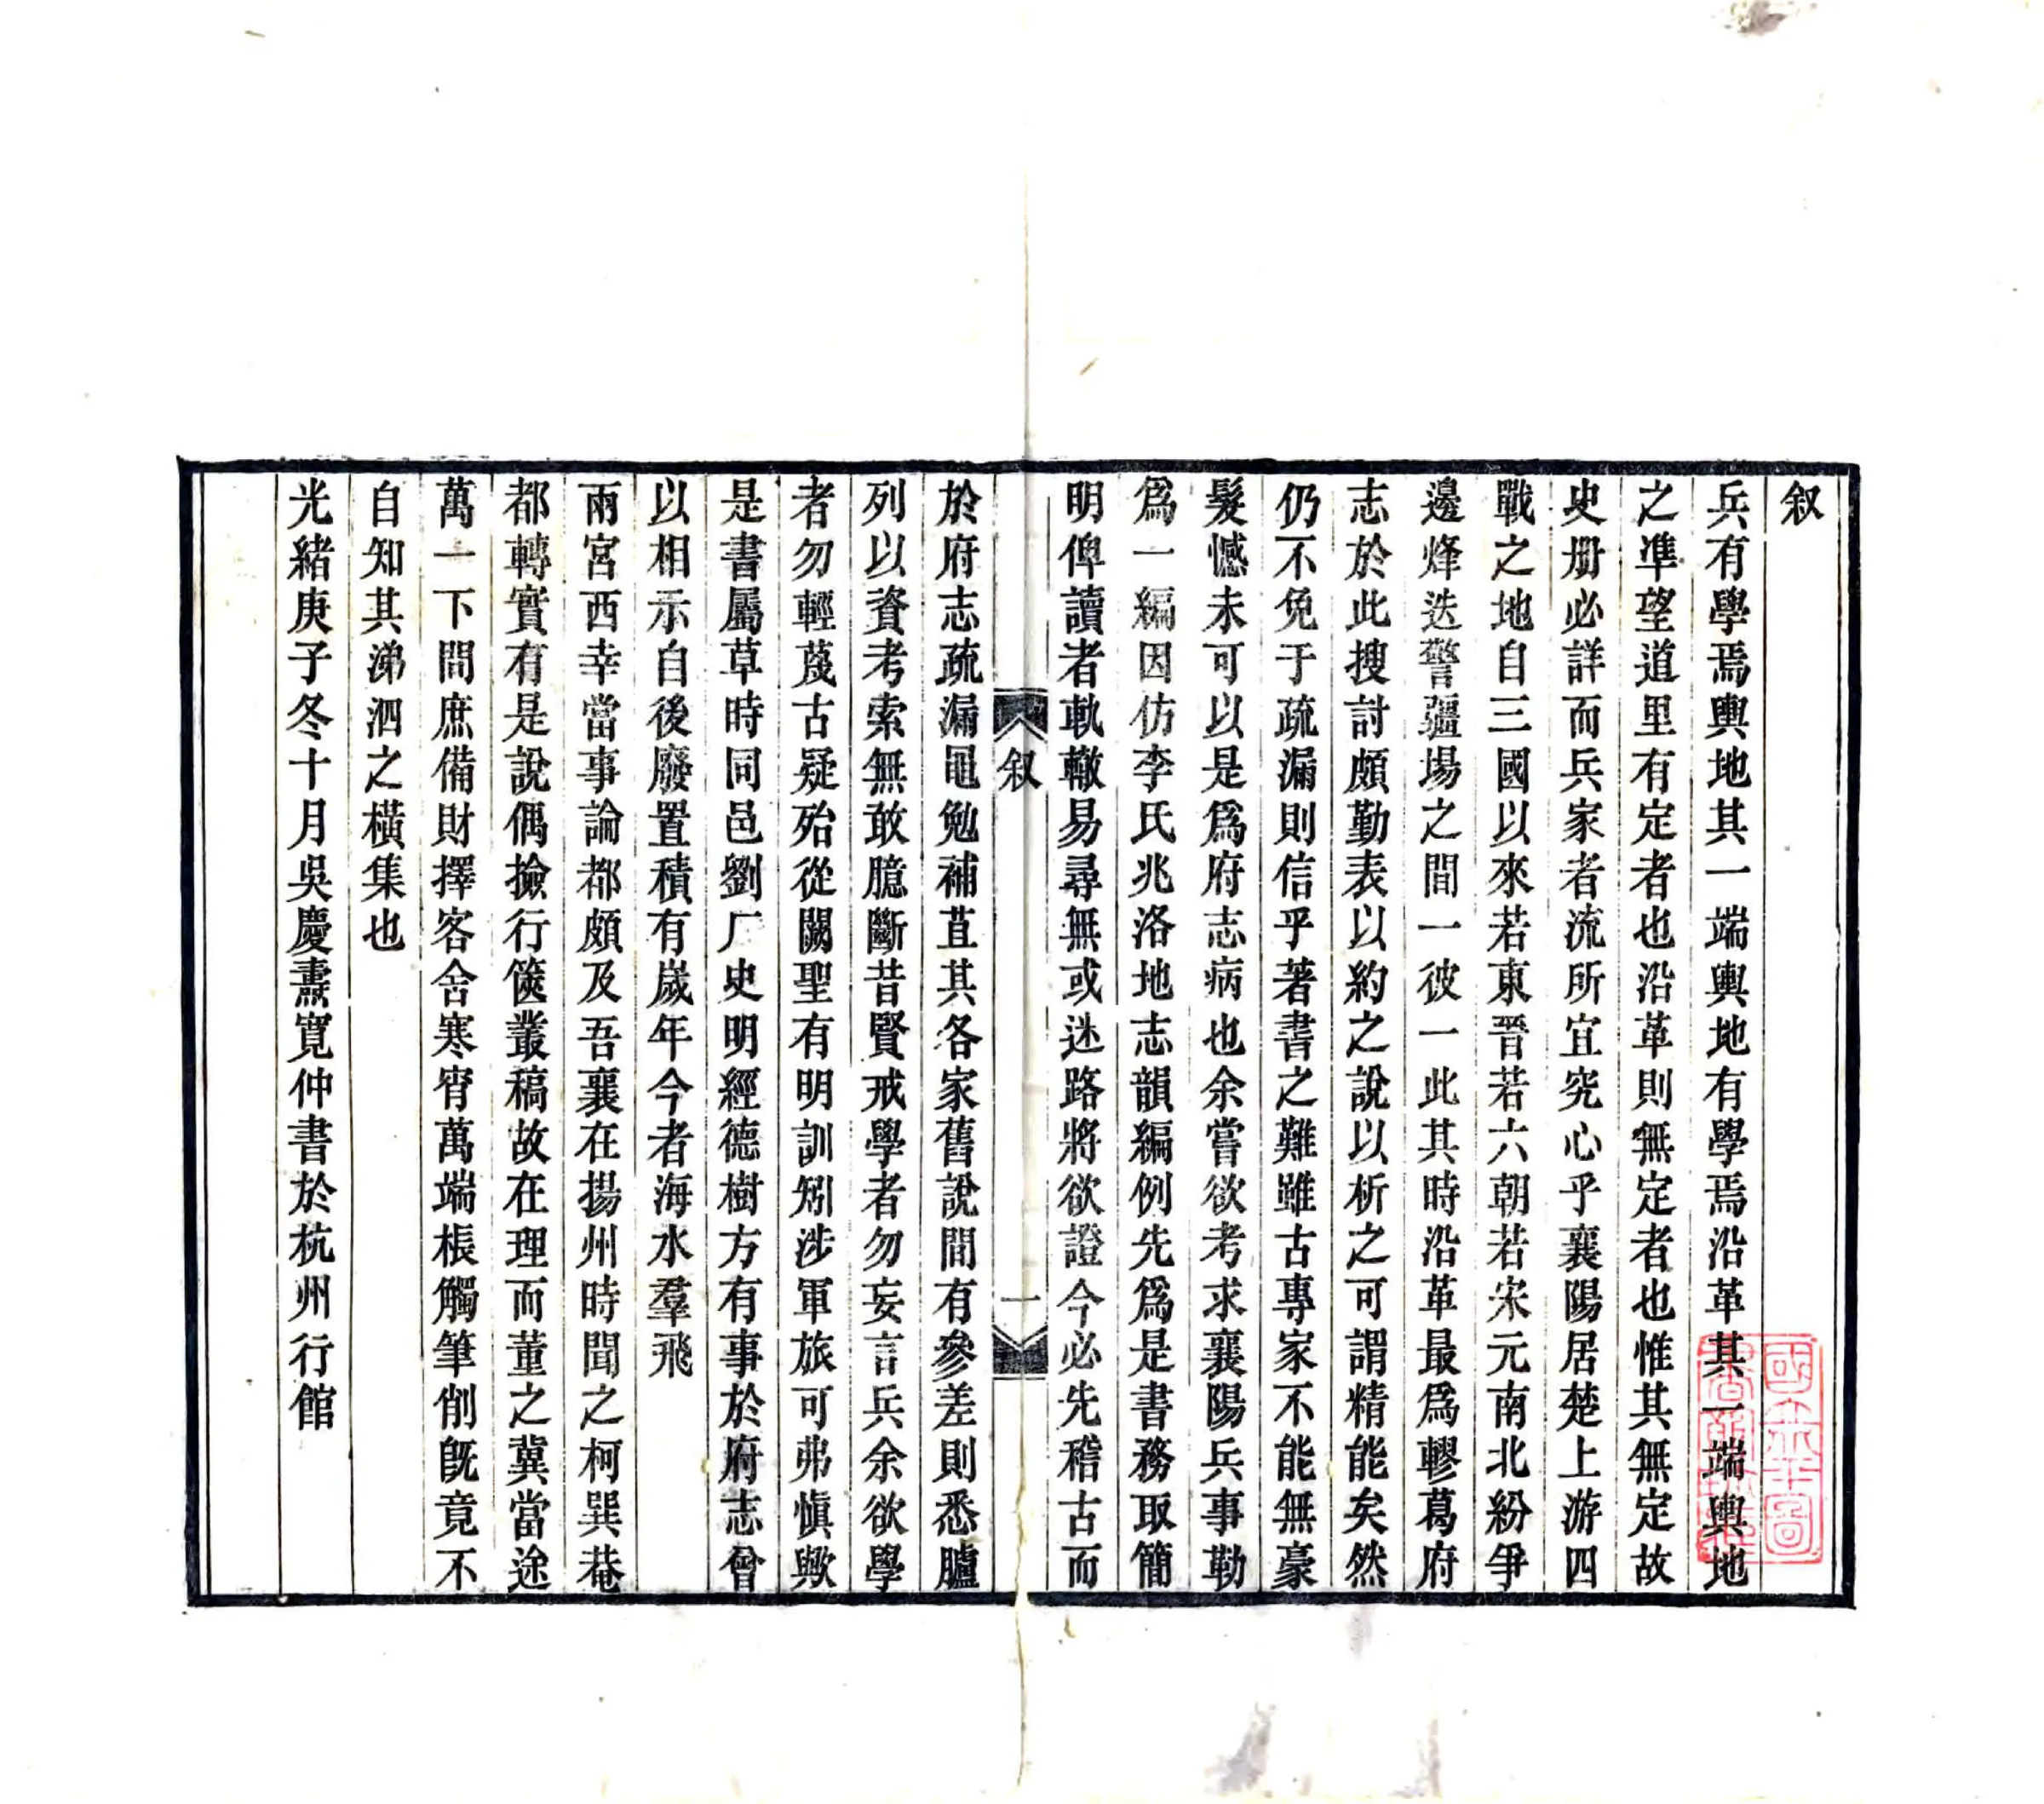 叙
兵有學焉輿地其一端輿地有學焉沿革其一端輿地
之準望道里有定者也沿革則無定者也惟其無定故
史册必詳而兵家者流所宜究心乎襄陽居楚上游四
戰之地自三國以來若東晉若六朝若宋元南北紛爭
邊烽迭警疆場之間一彼一此其時沿革最爲轇葛府
志於此搜討頗勤表以約之說以析之可謂精能矣然
仍不免于疏漏則信乎著書之難雖古專家不能無豪
髮憾未可以是爲府志病也余嘗欲考求襄陽兵事勒
爲一編因仿李氏兆洛地志韻編例先爲是書務取簡
明俾讀者軌轍易尋無或迷路將欲證今必先稽古而
叙
一
於府志疏漏黽勉補苴其各家舊說間有參差則悉臚
列以資考索無敢臆斷昔賢戒學者勿妄言兵余欲學
者勿輕蔑古疑殆從闕聖有明訓矧涉軍旅可弗慎歟
是書屬草時同邑劉厂史明經德樹方有事於府志曾
以相示自後廢置積有歲年今者海水羣飛
兩宮西幸當事論都頗及吾襄在揚州時聞之柯巽菴
都轉實有是說偶撿行篋叢稿故在理而董之冀當途
萬一下問庶備財擇客舍寒宵萬端棖觸筆削旣竟不
自知其涕泗之橫集也
光緒庚子冬十月吳慶燾寬仲書於杭州行館